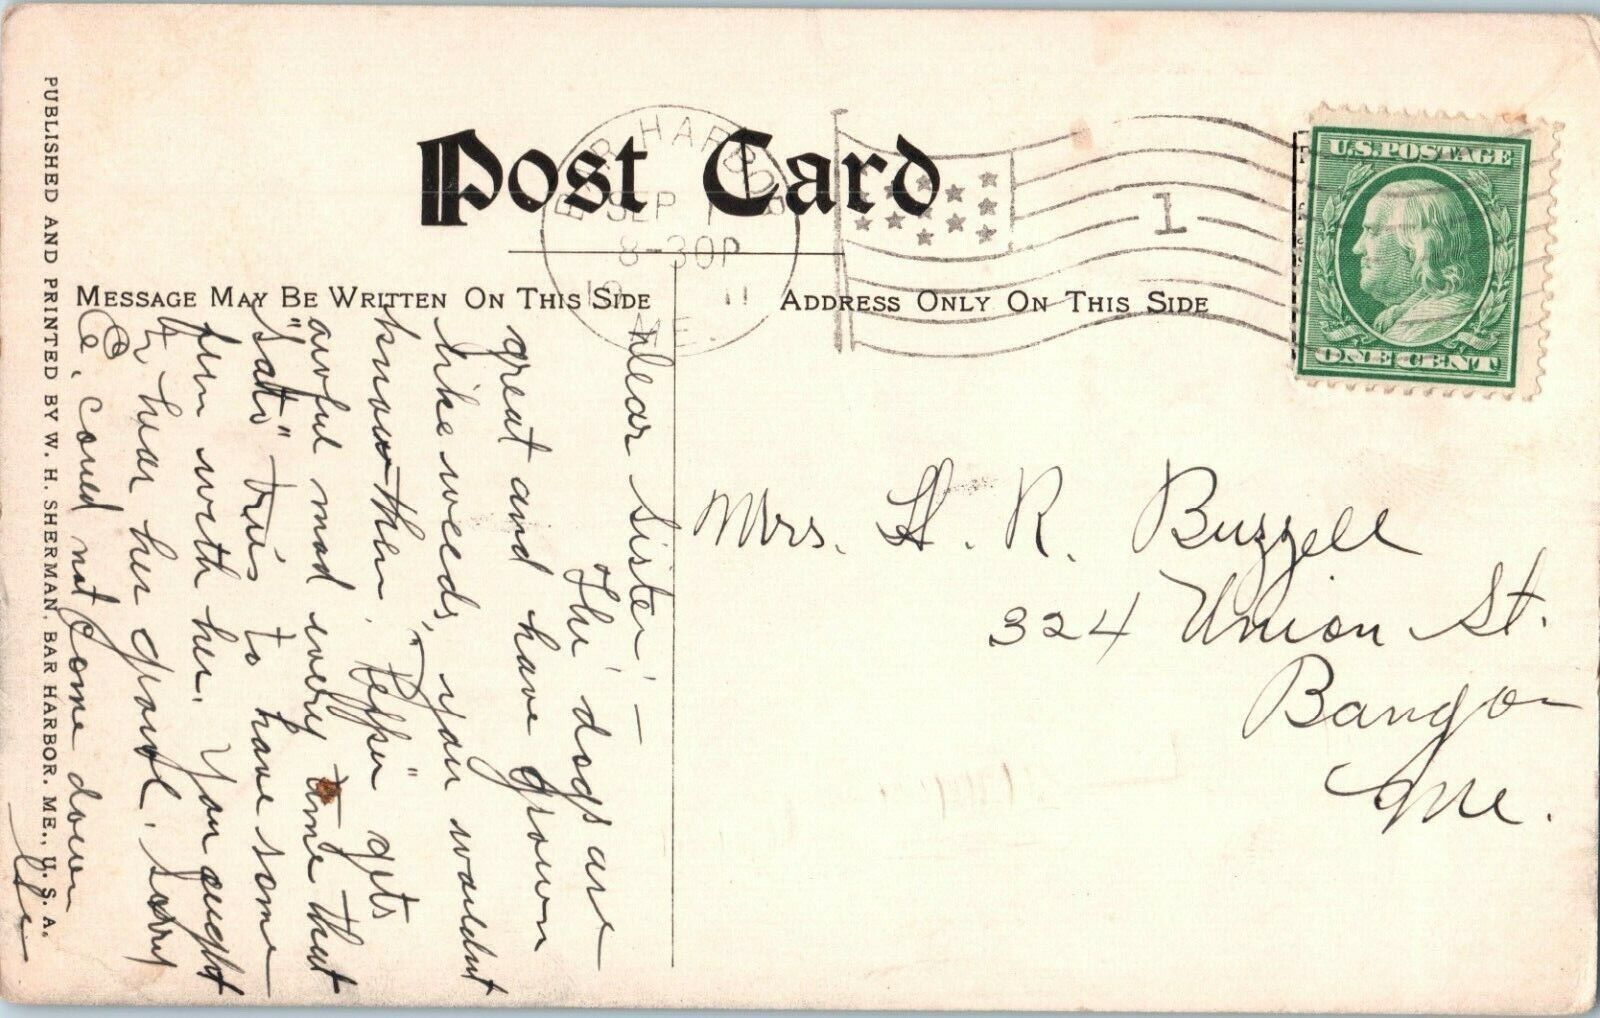 Post Card
BAR HARBOR
SEP 1
8-30P
19 11
ME.
1
U.S. POSTAGE
ONE CENT
MESSAGE MAY BE WRITTEN ON THIS SIDE
ADDRESS ONLY ON THIS SIDE
PUBLISHED AND PRINTED BY W. H. SHERMAN, BAR HARBOR, ME., U. S. A.
Dear Sister —
The dogs are
great and have grown
like weeds, you wouldnt
know them. "Peppie" gets
awful mad every time that
"Satis" tries to have some
fun with her. You ought
to hear her growl. Sorry
could not come down
Mrs. H. R. Buzzell
324 Union St.
Bangor
Me.